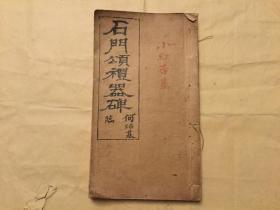 石門頌禮器碑
何紹基
臨